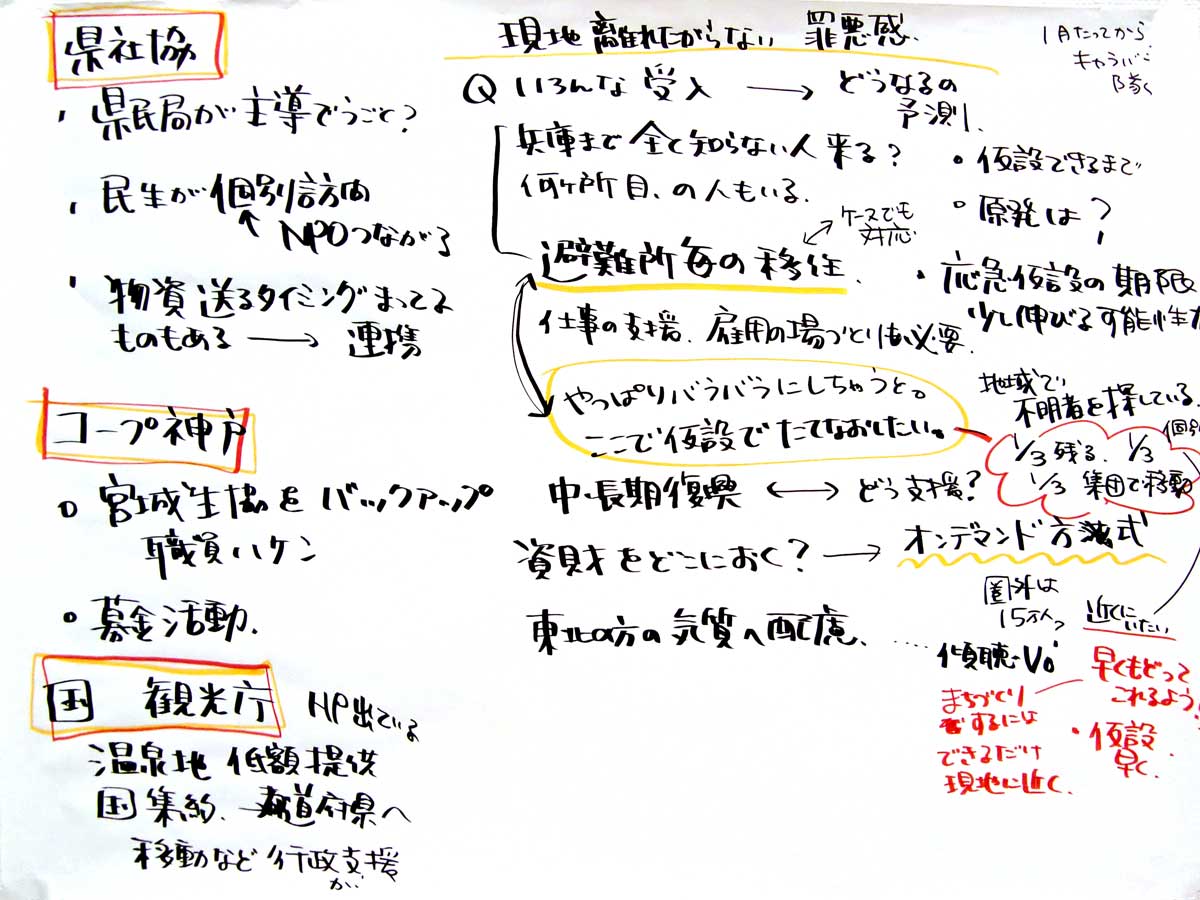 県社協
・県民局が主導でうごと?
・民生が個別訪問
↑NPOつながる
・物資送るタイミングまってる
ものもある → 連携
コープ神戸
○宮城生協をバックアップ
職員ハケン
○募金活動.
国 観光庁 HP出ている
温泉地 低額提供
国集約. →都道府県へ
移動など行政支援
が
現地離れたがらない 罪悪感.
1月たってから
キャラバン
隊く
Q いろんな受入 → どうなるの
予測.
兵庫まで全く知らない人来る?
何ヶ所目、の人もいる.
ケースでも
対応
避難所毎の移住.
仕事の支援、雇用の場づくりも必要.
やっぱりバラバラにしちゃうと。
ここで仮設でたてなおしたい。
・仮設できるまで
・原発は?
・応急仮設の期限
少し伸びる可能性が
地域で
不明者を探している.
個別
1/3残る、1/3
1/3 集団で移動
中・長期復興 ↔ どう支援?
資財をどこにおく? → オンデマンド方式
東北の方の気質へ配慮. ……
圏外は
15万人?
近くにいたい
傾聴・Vo
まちづくり
するには
できるだけ
現地に近く.
早くもどって
これるよう!
・仮設
早く.